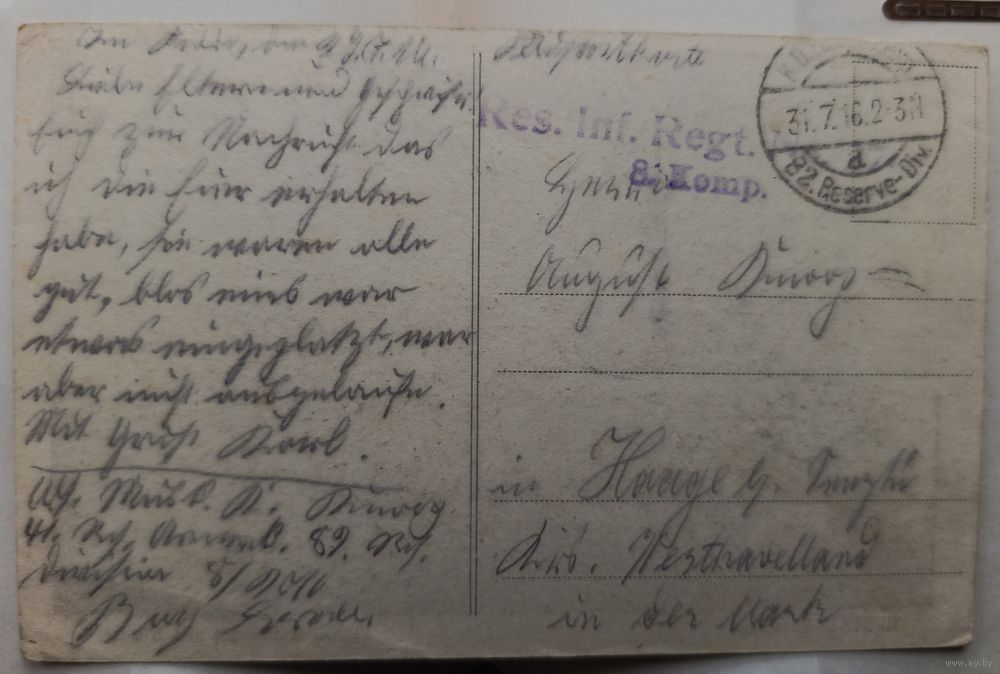 den 29.7.16.
Liebe Eltern und Geschwister!
Euch zur Nachricht das
ich die Eier erhalten
habe, sie waren alle
gut, blos eins war
etwas eingeplatzt, war
aber nicht ausgelaufen.
Mit Gruß Karl.
Abs. Musk. K.
41. Res. 82. Res.
Division 8/
Feldpostkarte
Res. Inf. Regt.
8. Komp.
31.7.16.2-3N
d
82. Reserve-Div.
Herrn
August
in Haage b.
Kreis. Westhavelland
in der Mark
www.ay.by